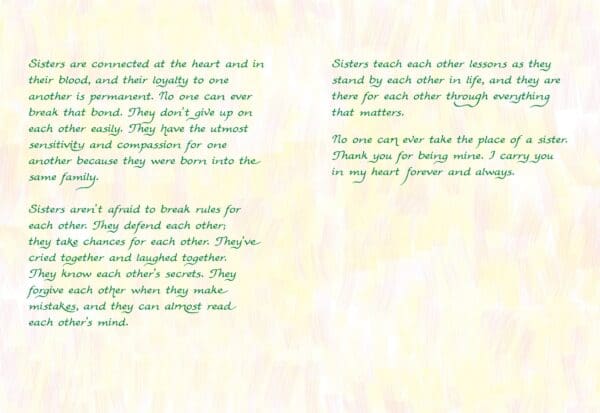 Sisters are connected at the heart and in
their blood, and their loyalty to one
another is permanent. No one can ever
break that bond. They don't give up on
each other easily. They have the utmost
sensitivity and compassion for one
another because they were born into the
same family.
Sisters aren't afraid to break rules for
each other. They defend each other;
they take chances for each other. They've
cried together and laughed together.
They know each other's secrets. They
forgive each other when they make
mistakes, and they can almost read
each other's mind.
Sisters teach each other lessons as they
stand by each other in life, and they are
there for each other through everything
that matters.
No one can ever take the place of a sister.
Thank you for being mine. I carry you
in my heart forever and always.